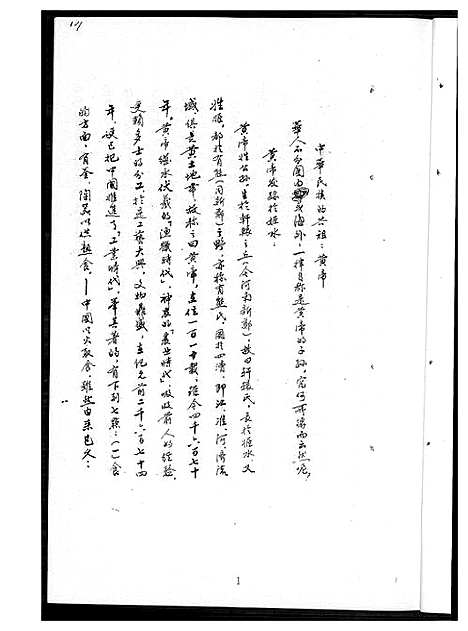 中華民族的共祖：黃帝
華人不分國內或海外，一律自稱是黃帝的子孫，究何所據而云然呢。
黃帝發跡於姬水：
黃帝姓公孫，生於軒轅之丘（今河南新鄭），故曰軒轅氏，長於姬水，又
姓姬，都於有熊（同新鄭）之野，亦稱有熊氏，國於四瀆，即江、淮、河、濟流
域，俱是黃土地帶，故稱之曰黃帝，在位一百一十載，距今四千六百七十
年。黃帝繼承伏羲的「漁獵時代」，神農的「農業時代」，吸收前人的經驗，
更賴多士的分工，於是工藝大興，文物鼎盛，在紀元前二千六百七十四
年，便已把中國推進了「工業時代」。筆其著的，有下列七點：（一）食
的方面，有釜、陶器以供熟食。——中國以火取食，雖然由來已久；
1